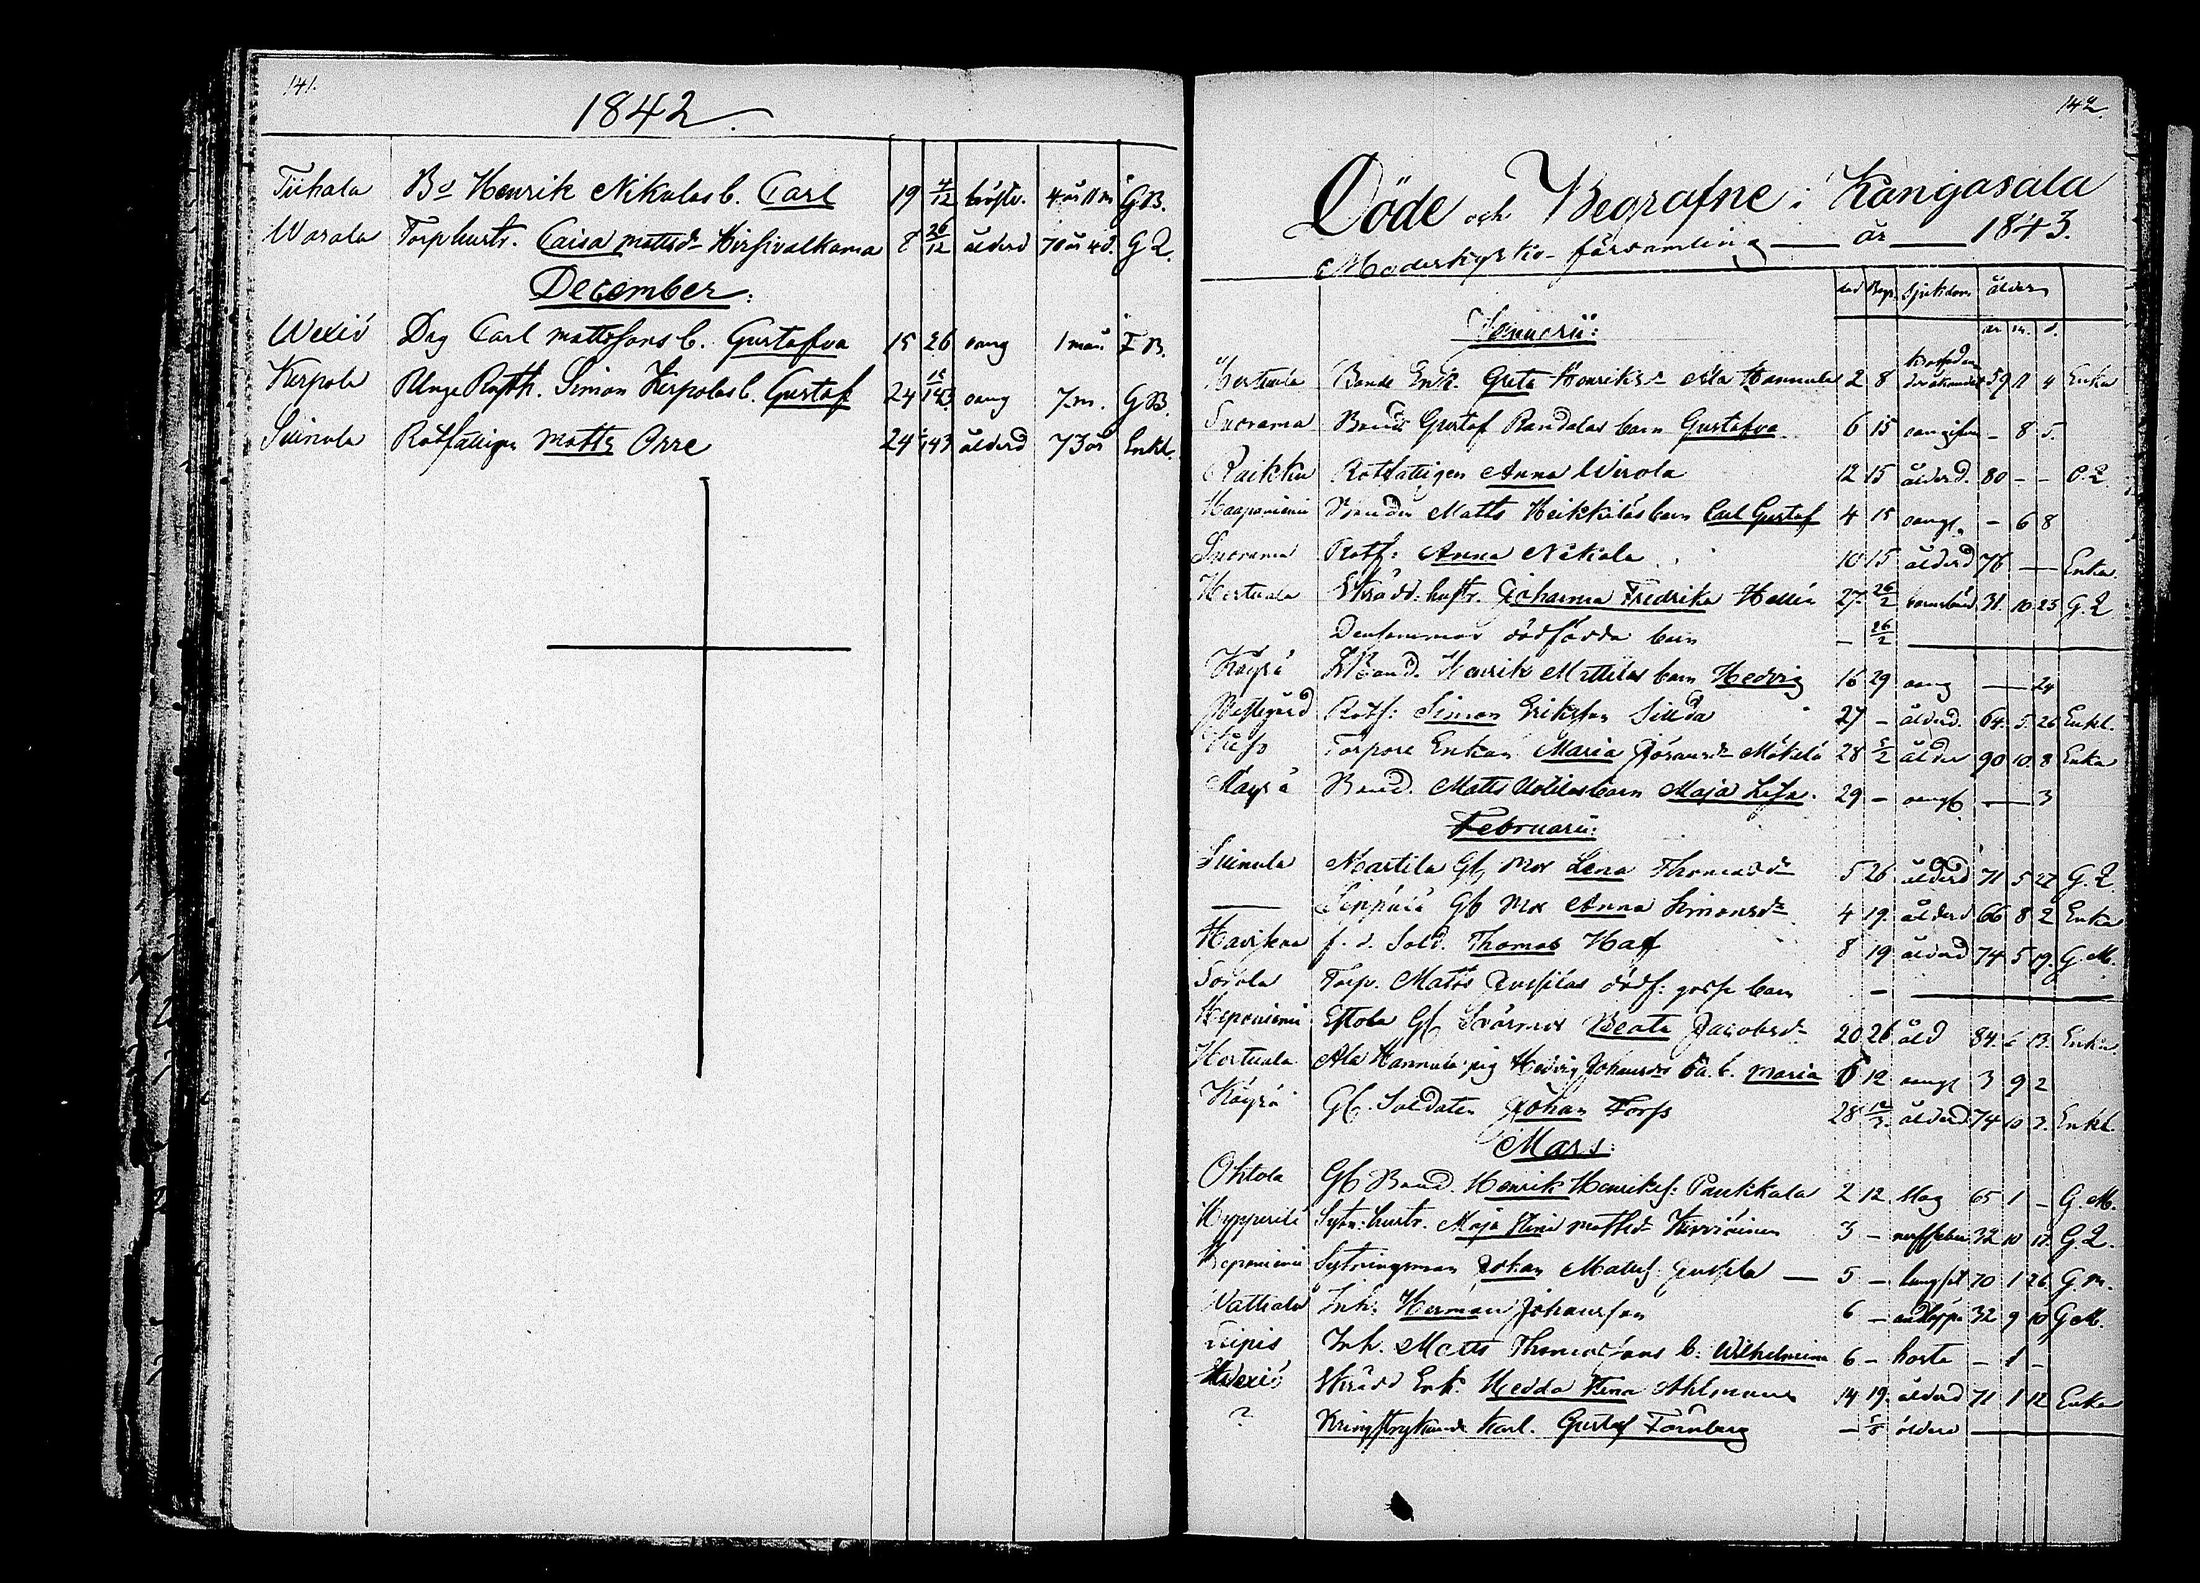 141.
1842.
Tiihala Bd Henrik Nikulas b. Carl 19 4/12 bröstv. 4 år 11 m GB.
Warala Torphustr. Caisa Mattsdr Hirsivalkama 8 26/12 ålderd 70 år 4 d. G Q.
December:
Wexiö Drg Carl Mattssons b. Gustafva 15 26 oang 1 mån F B.
Kerpola Unge Rusth. Simon Kerpolas b. Gustaf 24 15/1 43 oang 7 m. G B.
Suinula Rotfattigen Matts Orre 24 1/1 43 ålderd 73 år Enkl.
142.
Döde och Begrafne i Kangasala
Moderkyrko-församling — år — 1843.
död Begr. Sjukdom ålder
år m. d.
Januarii:
Hertuala Bonde Enk. Greta Henriksdr Ala Hannula 2 8 59 11 4 Enka
Suorama Bond Gustaf Randalas barn Gustafva 6 15 oangifven – 8 5.
Raikku Rotfattigen Anna Wirola 12 15 ålderd. 80 – – O. Q.
Haapaniemi Bonden Matts Heikkiläs barn Carl Gustaf 4 15 oang. – 6 8
Suorama Rotf: Anna Nikola 10 15 ålderd 76 — Enka.
Hertuala Skrädd: hustr. Johanna Fredrika Hellén 27 26/2 barnsbörd 31. 10 23 G. Q
Densammas dödfödda barn – 26/2 —
Käyrä LBond. Henrik Mattilas barn Hedvig 16 29 oang — 24
Westgård Rotf: Simon Eriksson Siuda 27 – ålderd. 64. 5. 26 Enkl.
Torpare Enkan Maria Göransdr Mäkelä 28 5/2 ålder 90 10 8 Enka
Käyrä Bond. Matts barn Maja Lisa. 29 – oang — 3
Februarii:
Suinula Martila Gb Mor Lena Thomasdr 5 26 ålderd 71 5 27 G. Q.
— Seppälä Gb Mor Anna Simonsdr 4 19. ålderd 66 8 2 Enka
Havisva f. d. Sold. Thomas Haf 8 19 ålderd 74 5 19. G. M.
Sorola Torp. Matts Jussilas dödf: gosse barn – —
Heponiemi Eskola Gb Svärmor Beata Jacobsdr 20 26 åld 84. 6 13. Enka.
Hertuala Ala Hannula pig Hedvig Johansdrs oä. b. Maria 6 12 oang 3 9 2
Käyrä Gb. Soldaten Johan Forss 28 12/3. ålderd 74 10 2. Enkl.
Mars:
Ohtola Gb Bond. Henrik Henrikss: Paukkala 2 12 slag 65 1 – G. M.
Hyppärilä Sytn: hustr. Maja Stina Mattsdr Kirviäinen 3 – nerffeber 32 10 12. G. Q.
Heponiemi Sytningsman Johan Matss: Jussila — 5 – lungsot 70 1 26. G. M.
Wattiala Inh: Herman Johansson 6 – 32 9 10 G M.
Liipis Inh. Matts Thomassons b: Wilhelmina 6 – hosta – 1 –
Wexiö Skrädd Enk. Hedda Stina Ahlman 14 19. ålderd 71 1 12 Enka
? Kringstrykande Karl. Gustaf Törnberg – 5/8 ålderd —